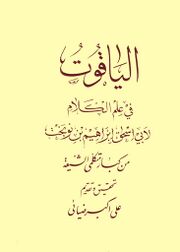 الياقوت
في علم الكلام
لابي اسحق ابراهيم بن نوبخت
من كبار متكلمي الشيعة
تحقيق وتقديم
علي اكبر ضيائي